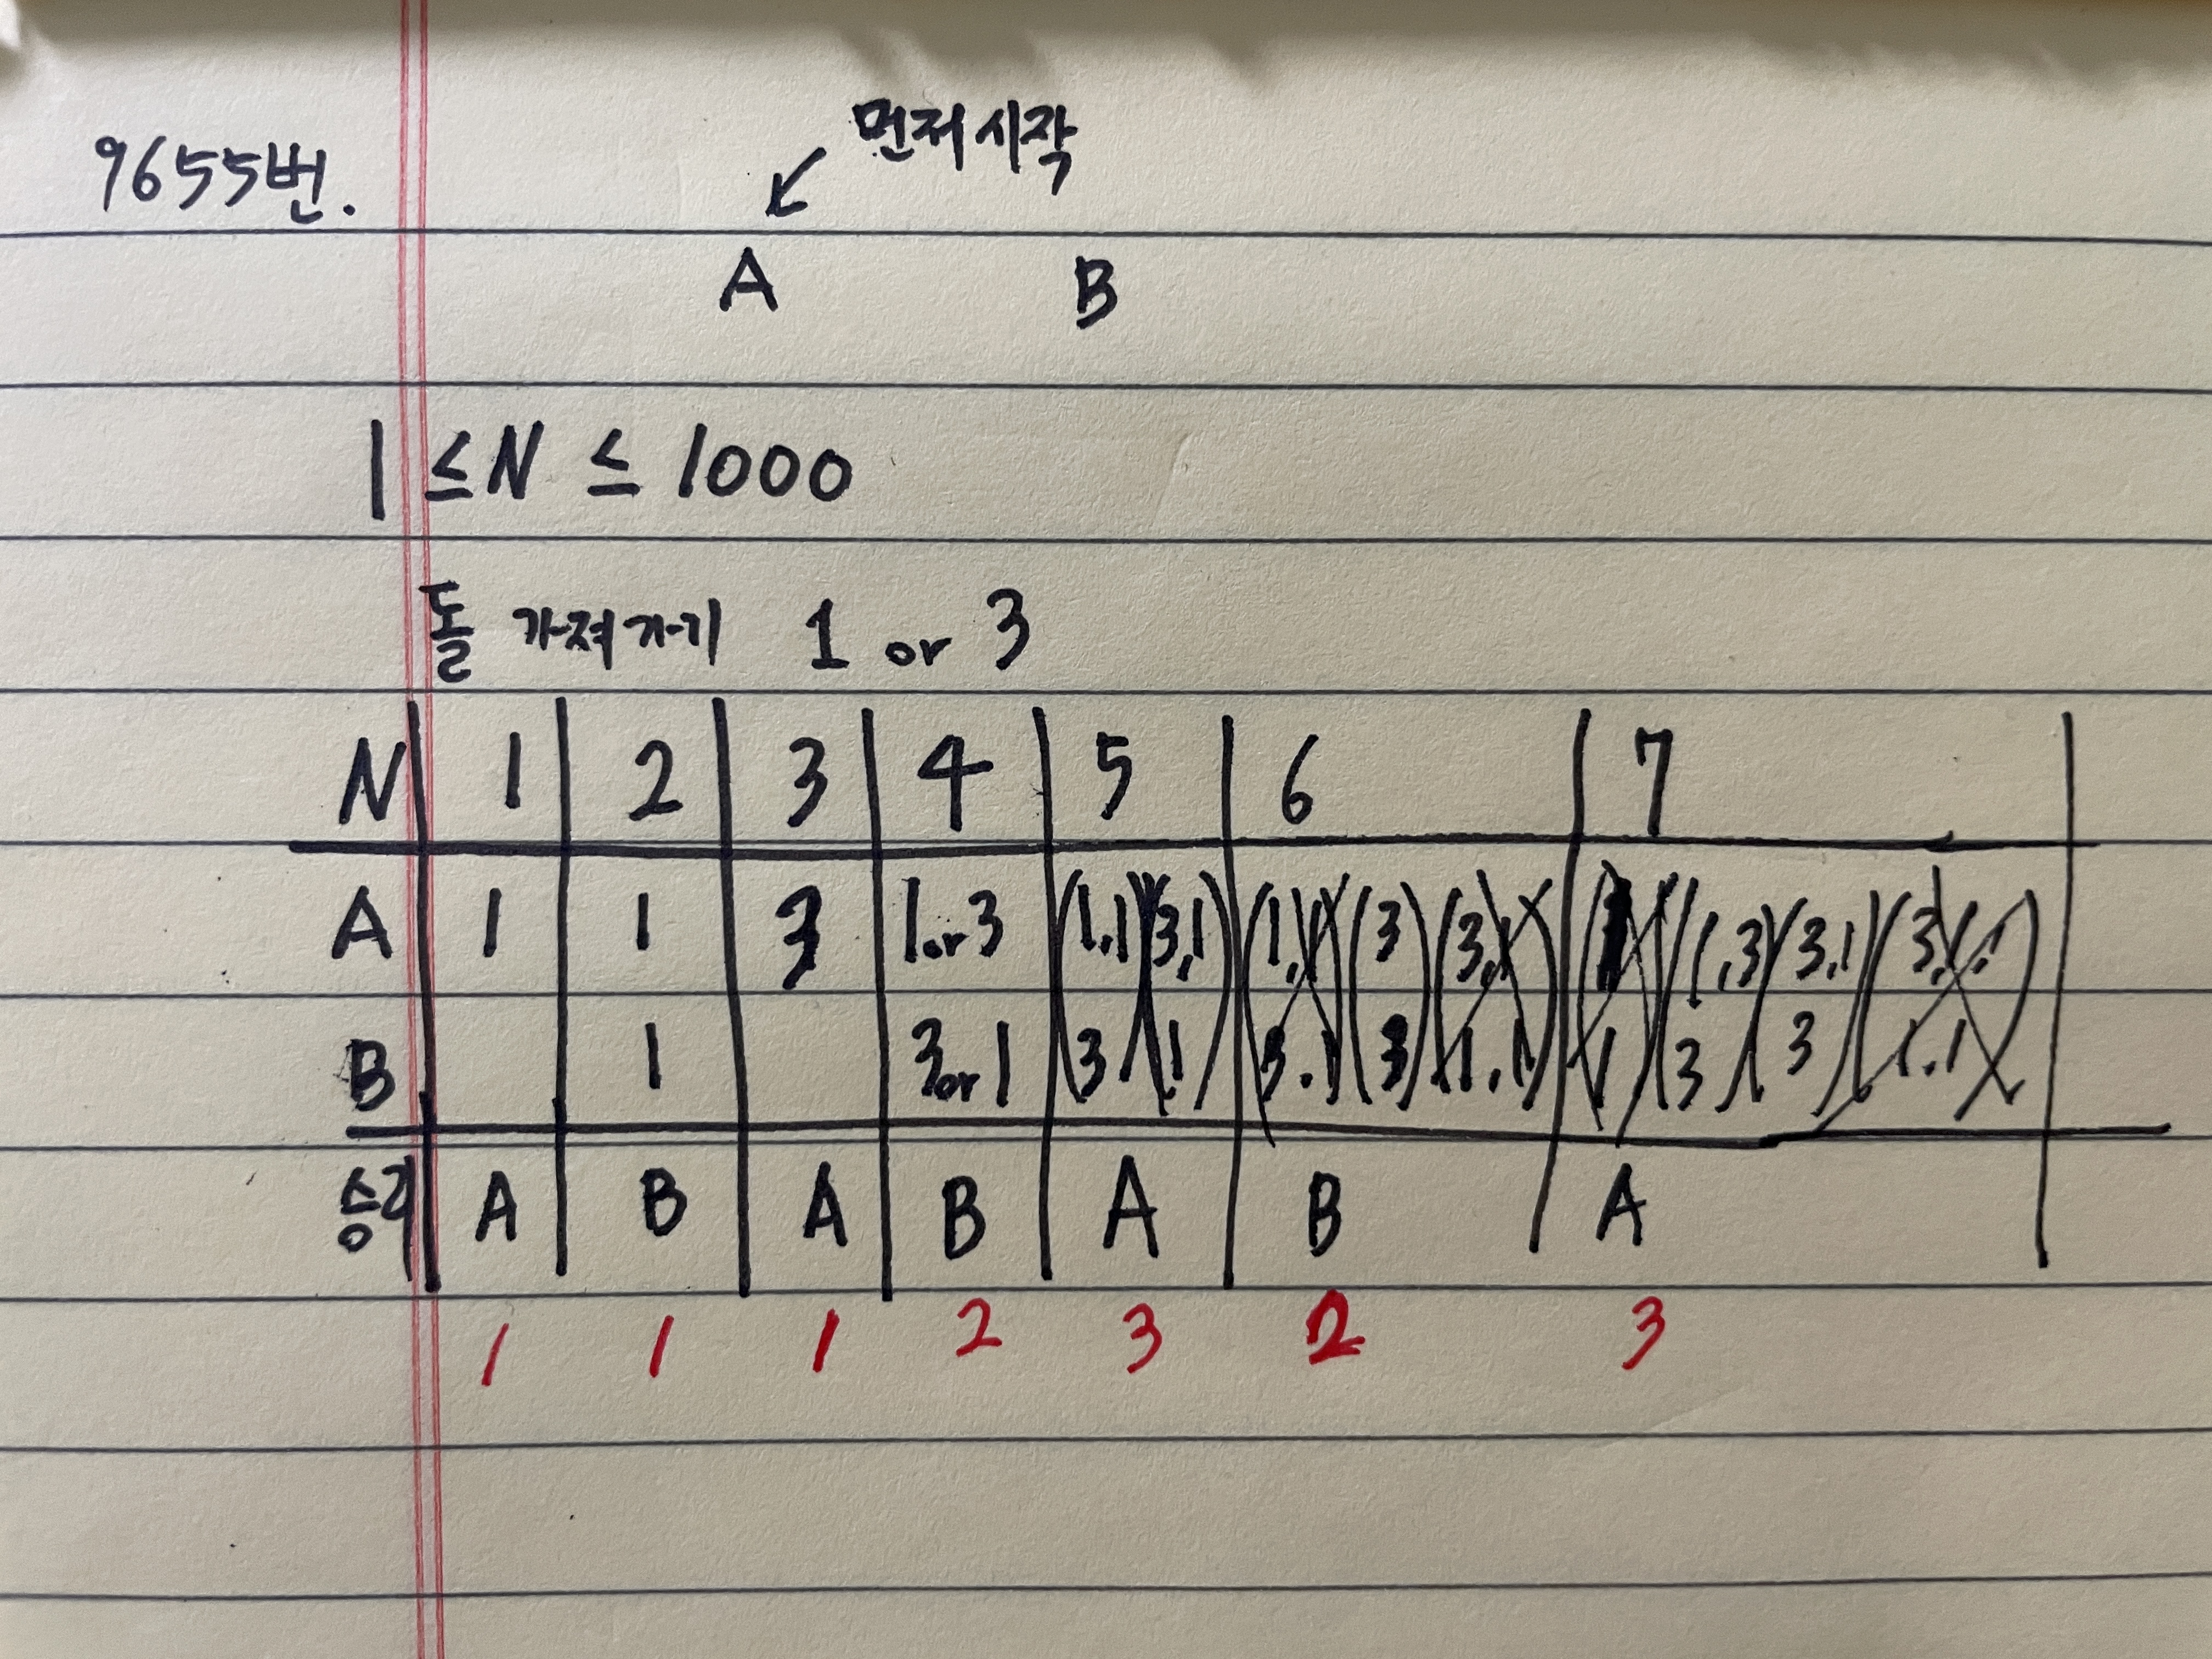 9655번.
먼저 시작
A B
1 ≤ N ≤ 1000
돌 가져가기 1 or 3
N 1 2 3 4 5 6 7
A 1 1 3 1 or 3 (1,1 (3,1) (1,1 (3) (3,1) (1,3) (3,1) (3,1.1)
B 1 3 or 1 (3) (1) 3.1) (3) 1.1) 1 3 3 1.1
승리 A B A B A B A
1 1 1 2 3 2 3